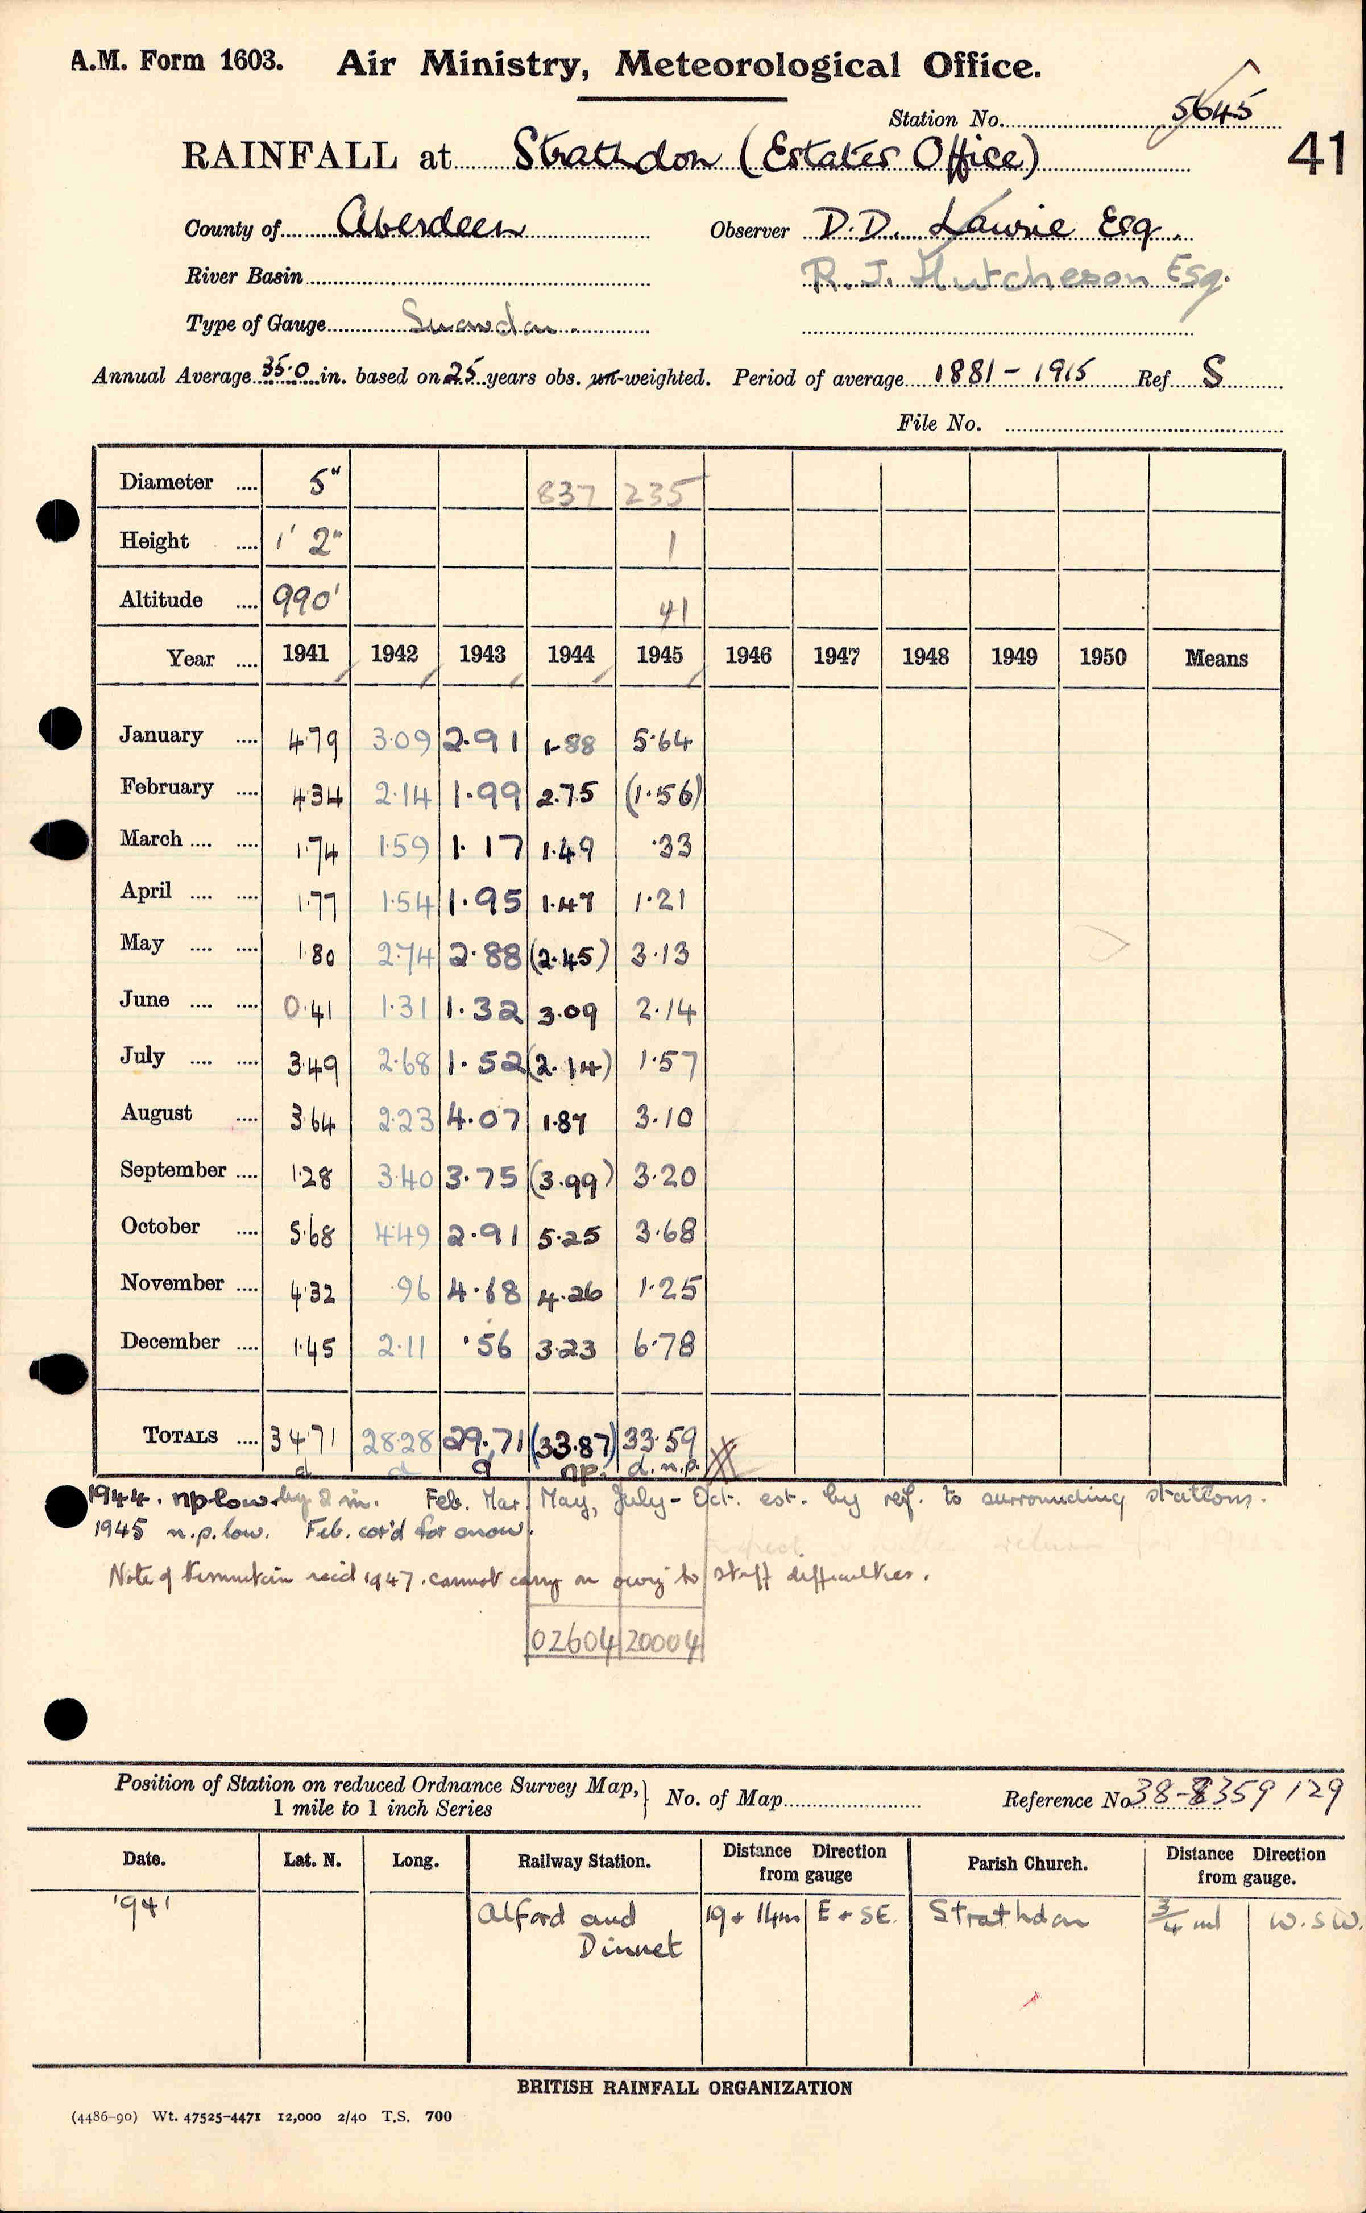 A.M. Form 1603. Air Ministry, Meteorological Office.
Station No. 5645
41
RAINFALL at Strathdon (Estates Office)
County of Aberdeen Observer D.D. Lawrie Esq.
River Basin R. J. Hutcheson Esq.
Type of Gauge Snowdon.
Annual Average 35.0 in. based on 25 years obs. un-weighted. Period of average 1881 - 1915 Ref S
File No.
Diameter .... 5" 837 235
Height .... 1' 2" 1
Altitude .... 990' 41
Year .... 1941 1942 1943 1944 1945 1946 1947 1948 1949 1950 Means
January .... 4.79 3.09 2.91 1.88 5.64
February .... 4.34 2.14 1.99 2.75 (1.56)
March .... .... 1.74 1.59 1.17 1.49 .33
April .... .... 1.77 1.54 1.95 1.47 1.21
May .... .... 1.80 2.74 2.88 (2.45) 3.13
June .... .... 0.41 1.31 1.32 3.09 2.14
July .... .... 3.49 2.68 1.52 (2.14) 1.57
August .... 3.64 2.23 4.07 1.87 3.10
September .... 1.28 3.40 3.75 (3.99) 3.20
October .... 5.68 4.49 2.91 5.25 3.68
November .... 4.32 .96 4.68 4.26 1.25
December .... 1.45 2.11 .56 3.23 6.78
TOTALS .... 34.71 28.28 29.71 (33.87) 33.59
d d d np. d. n.p.
1944. np low by 2 in. Feb. Mar. May, July - Oct. est. by ref. to surrounding stations.
1945 n.p. low. Feb. cor'd for snow.
Note of termination rec'd 1947. cannot carry on owing to staff difficulties.
02604 20004
Position of Station on reduced Ordnance Survey Map, 1 mile to 1 inch Series No. of Map Reference No 38-8359129
Date. Lat. N. Long. Railway Station. Distance Direction from gauge Parish Church. Distance Direction from gauge.
1941 Alford and Dinnet 19 + 14m E + SE. Strathdon 3/4 ml W.SW.
BRITISH RAINFALL ORGANIZATION
(4486-90) Wt. 47525-4471 12,000 2/40 T.S. 700